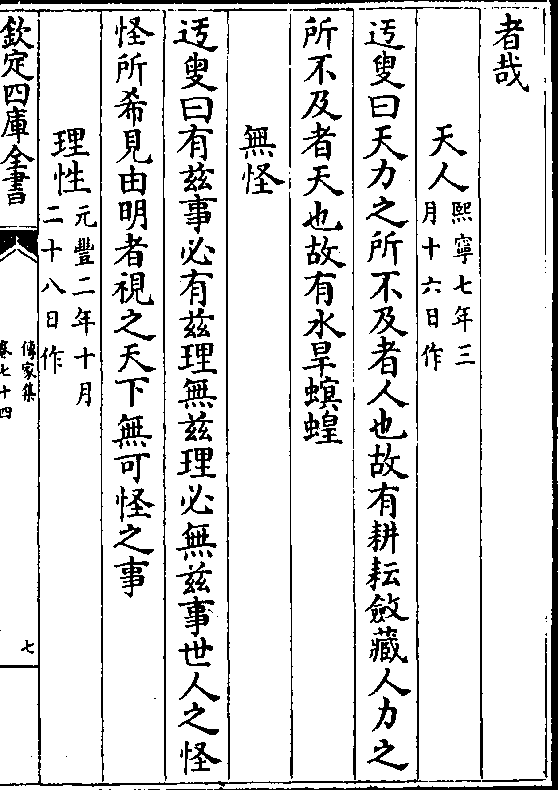 者哉
天人熙寧七年三
月十六日作
迃叟曰天力之所不及者人也故有耕耘斂藏人力之
所不及者天也故有水旱螟蝗
無怪
迃叟曰有兹事必有兹理無兹理必無兹事世人之怪
怪所希見由明者視之天下無可怪之事
理性元豐二年十月
二十八日作
欽定四庫全書
傳家集
卷七十四
七